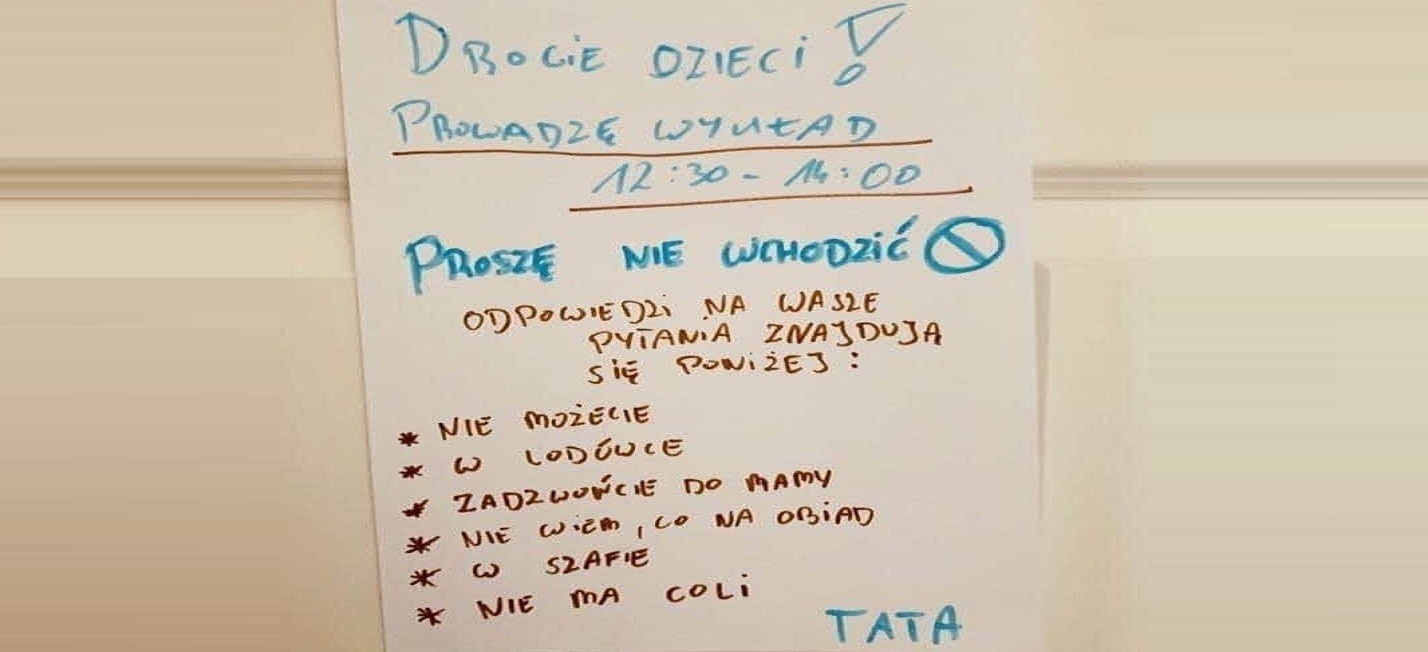 DROGIE DZIECI!
PROWADZĘ WYKŁAD
12:30 - 14:00
PROSZĘ NIE WCHODZIĆ
ODPOWIEDZI NA WASZE
PYTANIA ZNAJDUJĄ
SIĘ PONIŻEJ:
* NIE MOŻECIE
* W LODÓWCE
* ZADZWOŃCIE DO MAMY
* NIE WIEM, CO NA OBIAD
* W SZAFIE
* NIE MA COLI
TATA